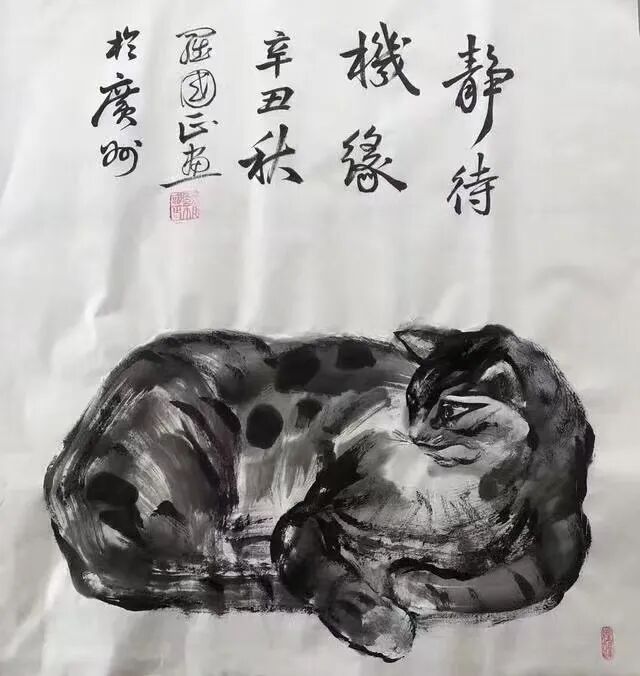 静待
機緣
辛丑秋
羅國正畫
於廣州